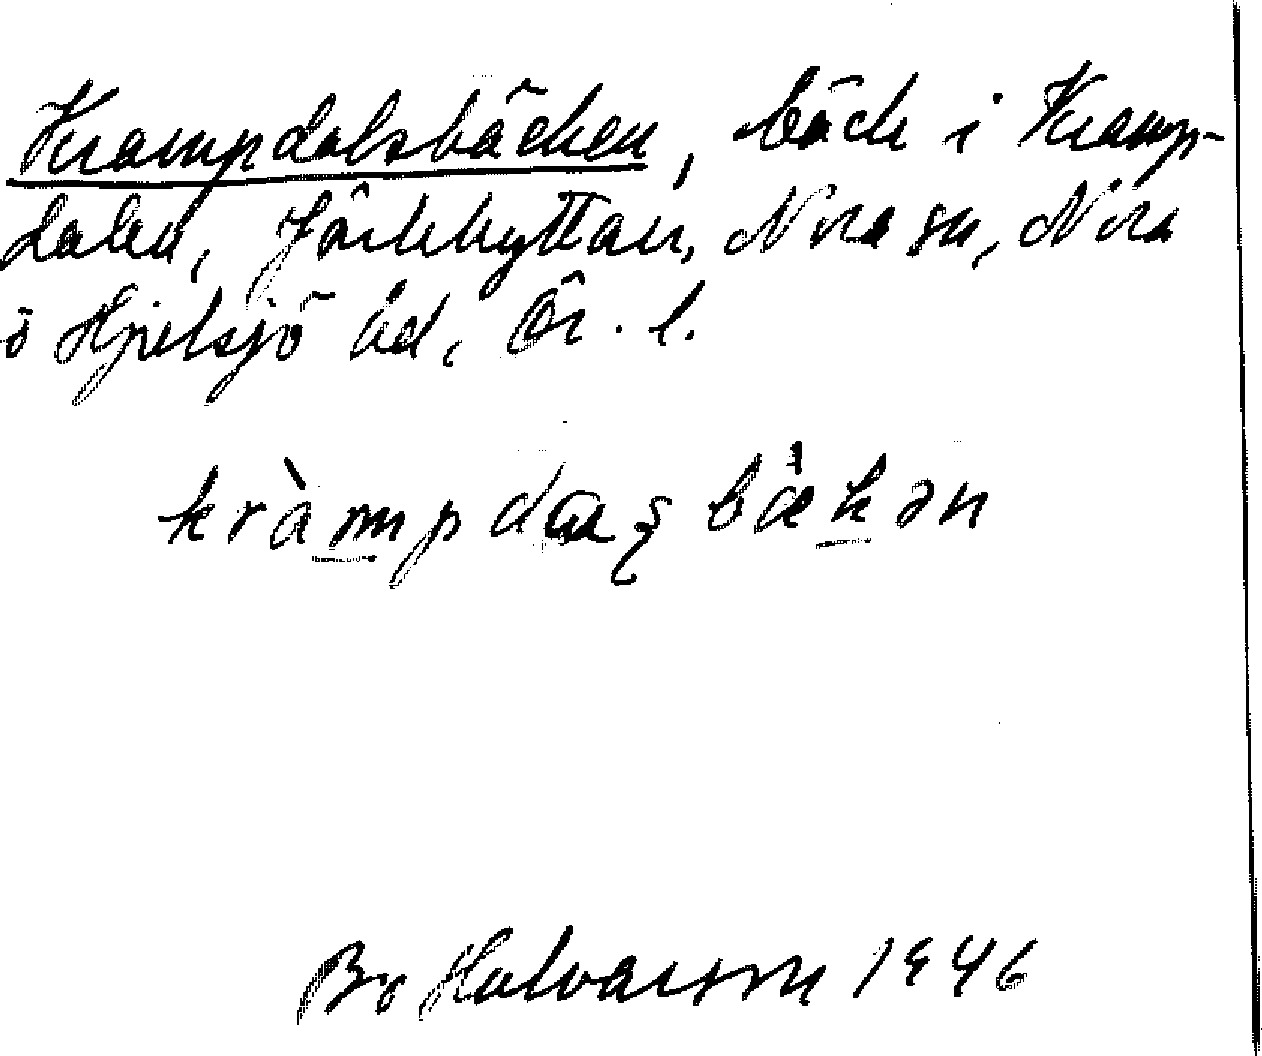 Krampdalsbäcken, bäck i Kramp-
dalen, Järlehyttan, Nora sn, Nora
o Hjulsjö bd, Ör. l.
kràmpdaʂbækən
Bo Halvarsson 1946